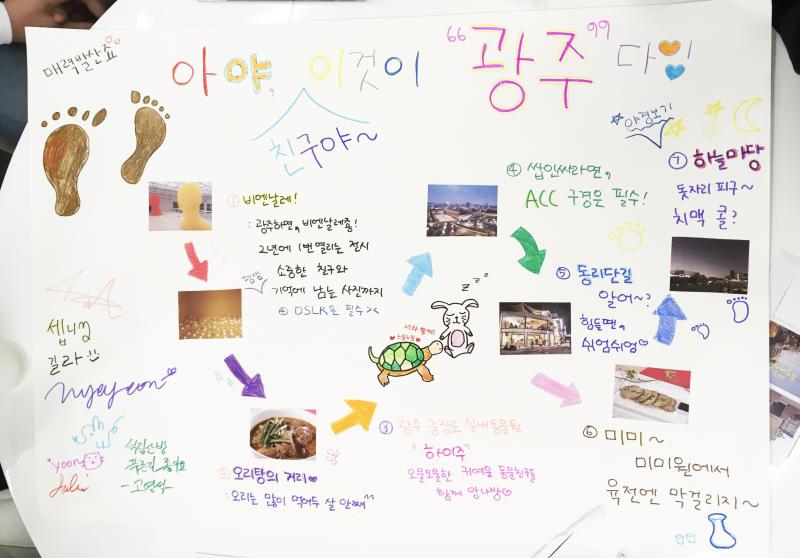 매력발산죠
아야, 이것이 "광주"다!
친구야~
① 비엔날레!
: 광주하면, 비엔날레쥬!
2년에 1번 열리는 전시
소중한 친구와
기억에 남는 사진까지
④ DSLR은 필수 ><
② 오리탕의 거리
: 오리는 많이 먹어두 살 안쪄^^
③ 광주 충장로 실내동물원
"하이주"
오물오물한 귀여운 동물친구들
함께 만나봥
너와 함께!
느릿느릿
z z z
④ 쌉인싸라면,
ACC 구경은 필수!
⑤ 동리단길
알어~?
힘들땐,
쉬엄쉬엄
⑥ 미미~
미미원에서
육전엔 막걸리지~
야경보기
⑦ 하늘마당
돗자리 피구~
치맥 콜?
세빈
길라
Nyeyeon
yoon
Juli
푸른길
-고영석